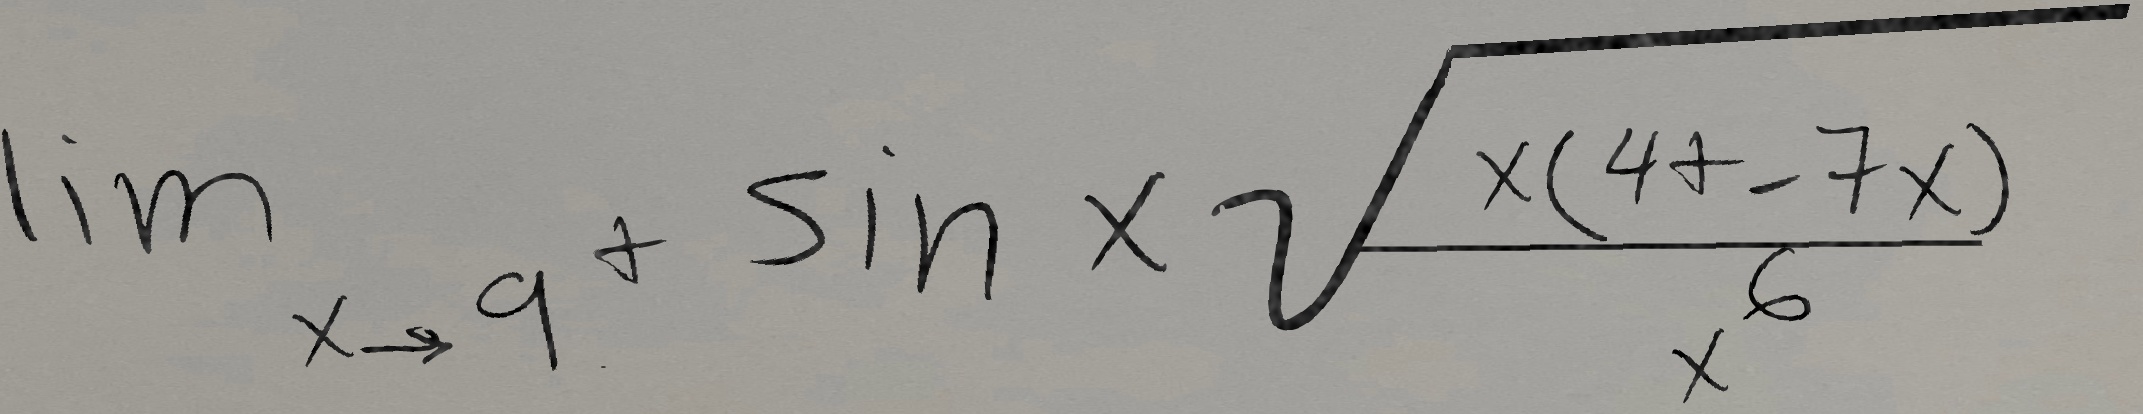 \lim_{x \to 9^+} \sin x \sqrt{\frac{x(4+-7x)}{x^6}}